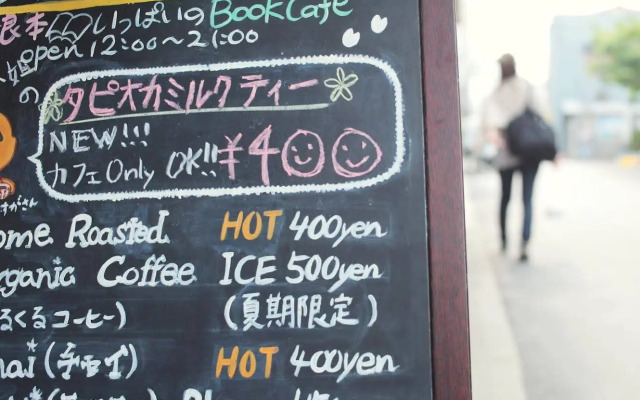 本 いっぱいの Book Cafe
open 12:00～21:00
の
タピオカミルクティー
NEW!!!
カフェOnly OK!! ¥400
ome Roasted HOT 400yen
rganic Coffee ICE 500yen
るくるコーヒー) (夏期限定)
hai (チャイ) HOT 400yen